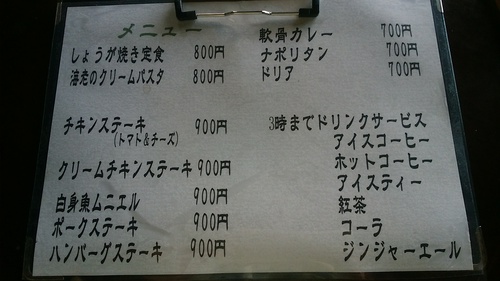 メニュー
しょうが焼き定食 800円
海老のクリームパスタ 800円
チキンステーキ 900円
(トマト&チーズ)
クリームチキンステーキ 900円
白身魚ムニエル 900円
ポークステーキ 900円
ハンバーグステーキ 900円
軟骨カレー 700円
ナポリタン 700円
ドリア 700円
3時までドリンクサービス
アイスコーヒー
ホットコーヒー
アイスティー
紅茶
コーラ
ジンジャーエール